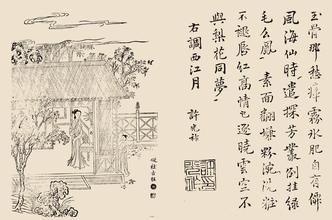 玉骨那愁瘴霧氷肌自有仙
風海仙時遣探芳叢倒挂綠
毛么鳳素面翻嫌粉涴洗粧
不褪唇紅高情已逐曉雲空不
與梨花同夢
右調西江月 許光祚